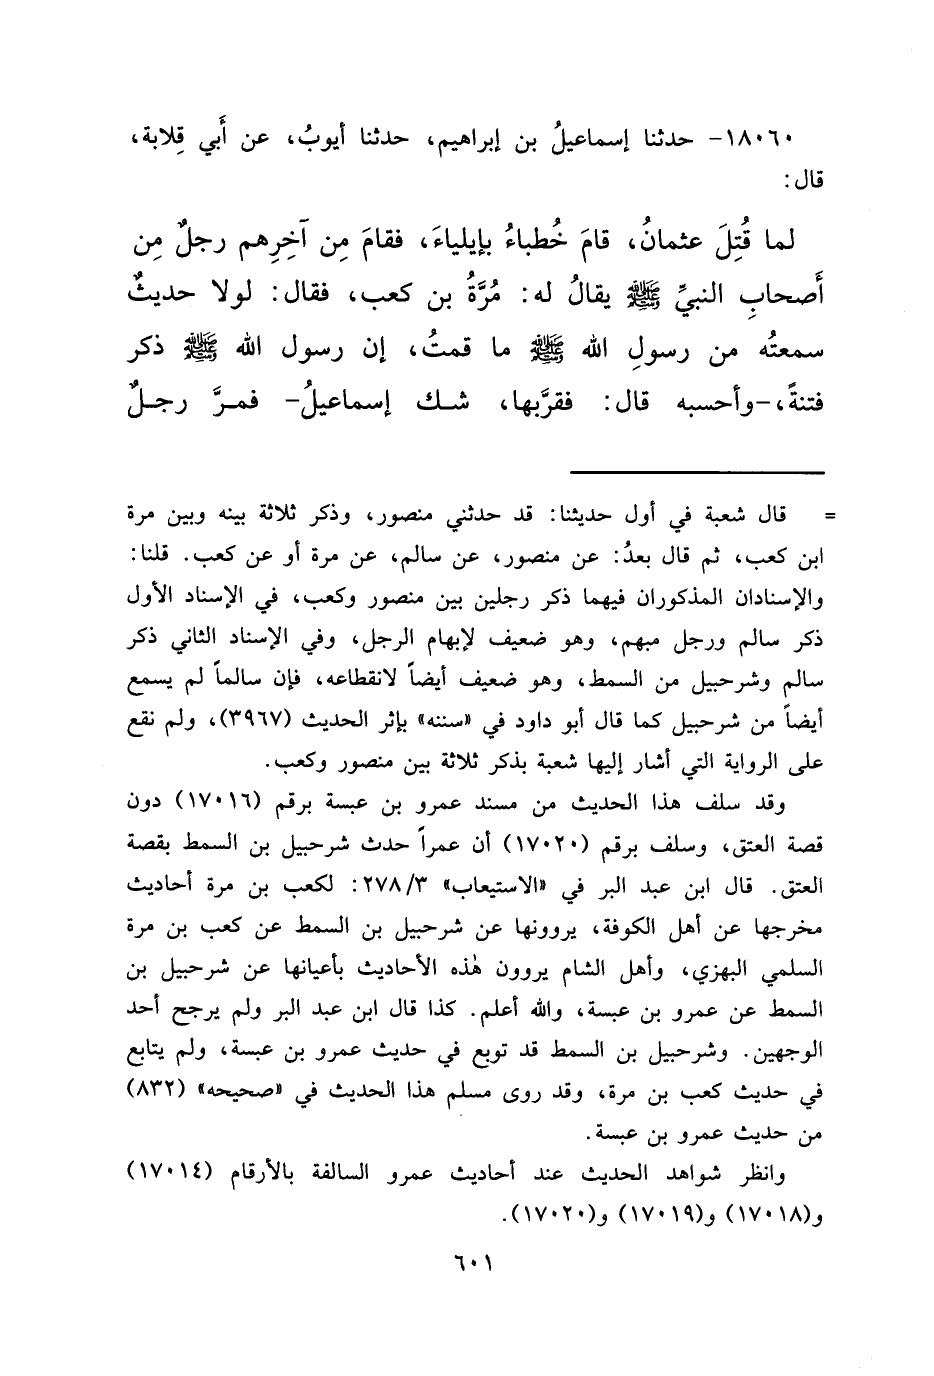 ١٨٠٦٠- حدثنا إسماعيلُ بن إبراهيم، حدثنا أيوبُ، عن أَبي قِلابة،
قال:
لما قُتِلَ عثمانُ، قامَ خُطباءُ بإيلياءَ، فقامَ مِن آخِرِهم رجلٌ مِن
أَصحابِ النبيِّ ﷺ يقالُ له: مُرَّةُ بن كعب، فقال: لولا حديثٌ
سمعتُه من رسولِ الله ﷺ ما قمتُ، إن رسول الله ﷺ ذكر
فتنةً، -وأحسبه قال: فقرَّبها، شك إسماعيلُ- فمرَّ رجلٌ
= قال شعبة في أول حديثنا: قد حدثني منصور، وذكر ثلاثة بينه وبين مرة
ابن كعب، ثم قال بعدُ: عن منصور، عن سالم، عن مرة أو عن كعب. قلنا:
والإسنادان المذكوران فيهما ذكر رجلين بين منصور وكعب، في الإسناد الأول
ذكر سالم ورجل مبهم، وهو ضعيف لإبهام الرجل، وفي الإسناد الثاني ذكر
سالم وشرحبيل من السمط، وهو ضعيف أيضاً لانقطاعه، فإن سالماً لم يسمع
أيضاً من شرحبيل كما قال أبو داود في «سننه» بإثر الحديث (٣٩٦٧)، ولم نقع
على الرواية التي أشار إليها شعبة بذكر ثلاثة بين منصور وكعب.
وقد سلف هذا الحديث من مسند عمرو بن عبسة برقم (١٧٠١٦) دون
قصة العتق، وسلف برقم (١٧٠٢٠) أن عمراً حدث شرحبيل بن السمط بقصة
العتق. قال ابن عبد البر في «الاستيعاب» ٢٧٨/٣: لكعب بن مرة أحاديث
مخرجها عن أهل الكوفة، يروونها عن شرحبيل بن السمط عن كعب بن مرة
السلمي البهزي، وأهل الشام يروون هٰذه الأحاديث بأعيانها عن شرحبيل بن
السمط عن عمرو بن عبسة، والله أعلم. كذا قال ابن عبد البر ولم يرجح أحد
الوجهين. وشرحبيل بن السمط قد توبع في حديث عمرو بن عبسة، ولم يتابع
في حديث كعب بن مرة، وقد روى مسلم هذا الحديث في «صحيحه» (٨٣٢)
من حديث عمرو بن عبسة.
وانظر شواهد الحديث عند أحاديث عمرو السالفة بالأرقام (١٧٠١٤)
و(١٧٠١٨) و(١٧٠١٩) و(١٧٠٢٠).
٦٠١